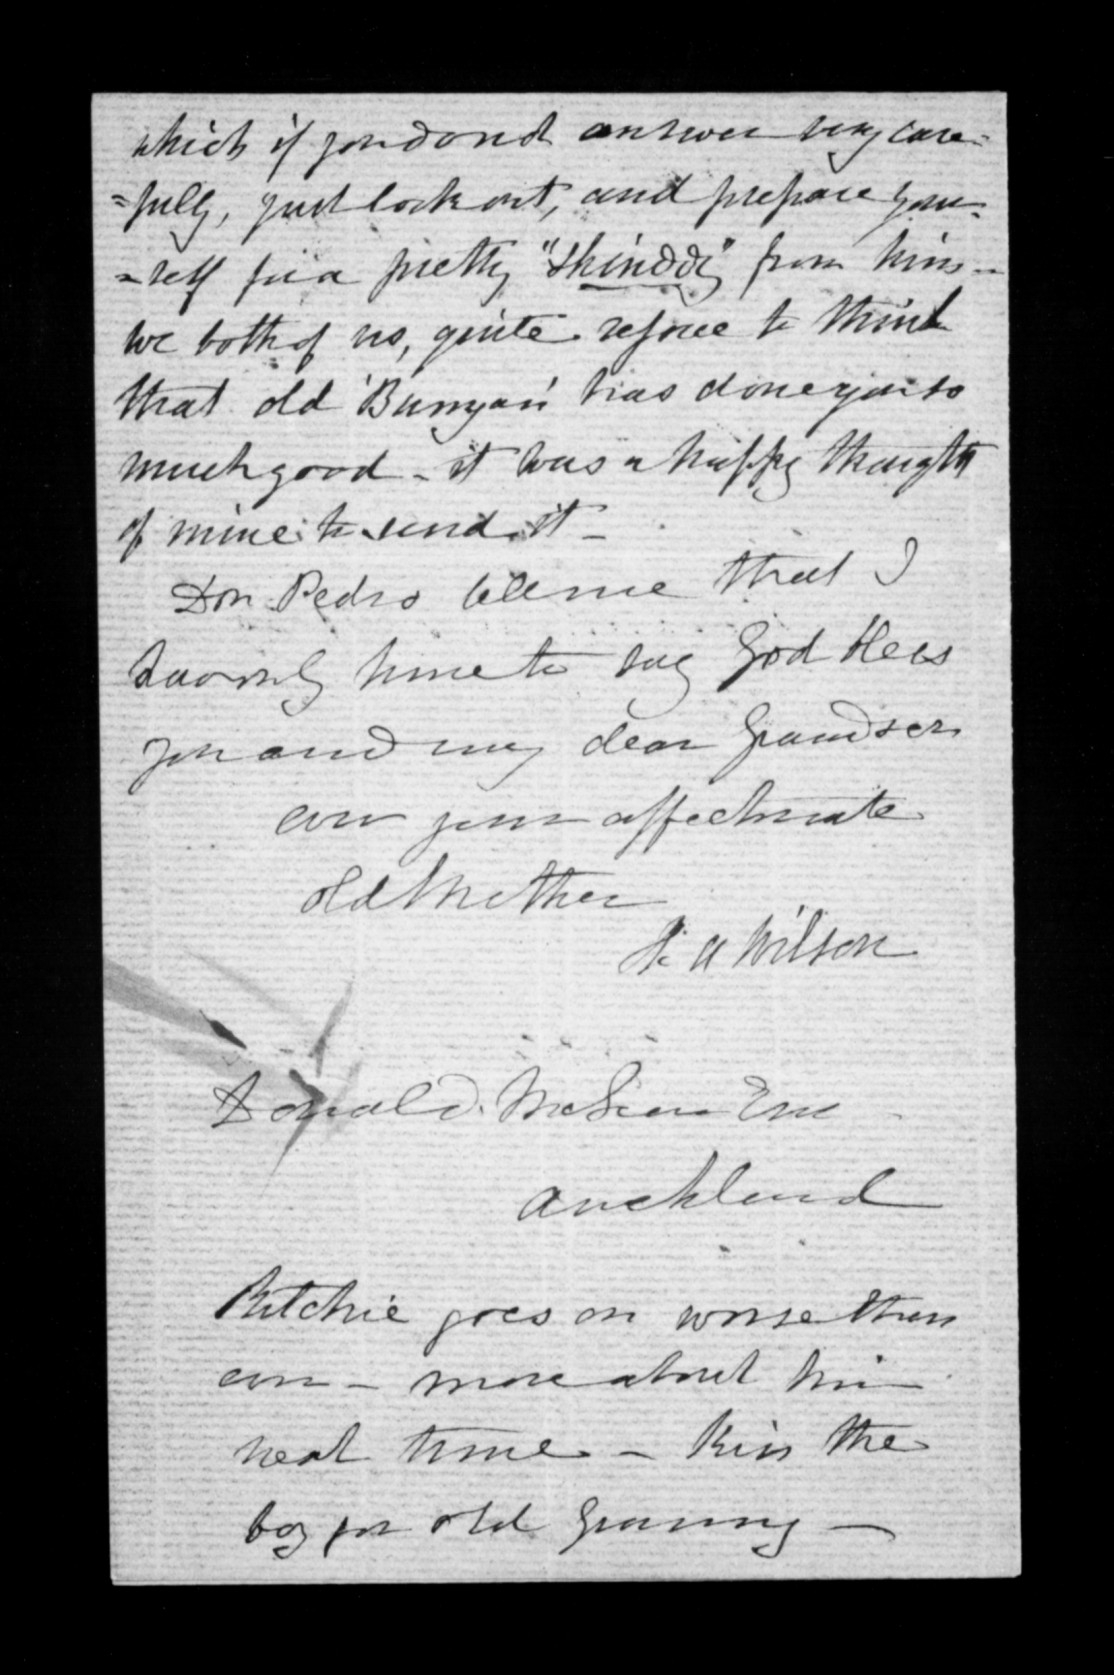 which if you do not answer very care=
=fully, just look out, and prepare your=
=self for a pretty "Shinddy" from him -
we both of us, quite rejoice to think
that old 'Bunyan' has done you so
much good - it was a happy thought
of mine to send it -
Don Pedro tells me that I
have only time to say God bless
you and my dear Grandson
ever your affectionate
old Mother
A Wilson
Donald McLean Esq
Auckland
Ritchie goes on worse than
ever - more about him
next time - Kiss the
boy for old Granny -